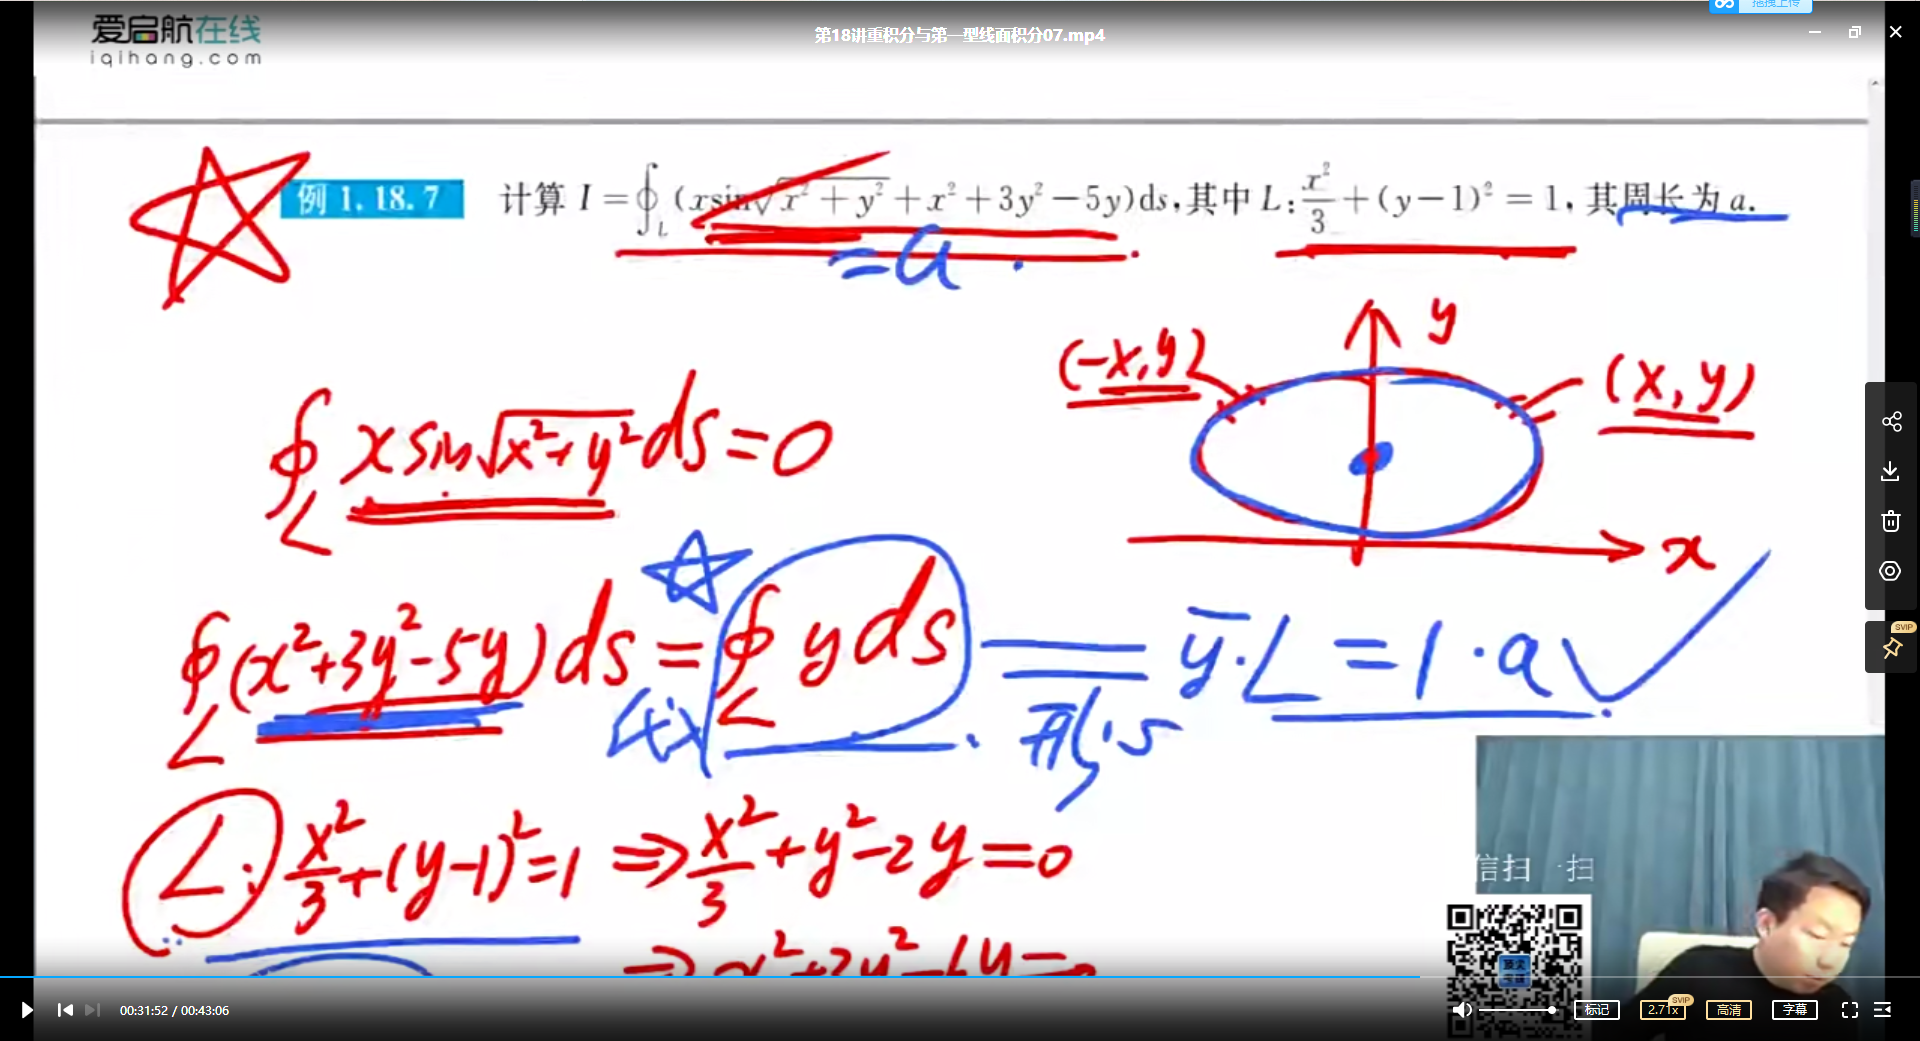 拖拽上传
爱启航在线
iqihang.com
第18讲重积分与第一型线面积分07.mp4
例 1.18.7 计算 I = ∮_L (x sin√(x² + y²) + x² + 3y² − 5y)ds, 其中 L: x²/3 + (y − 1)² = 1, 其周长为 a.
= a
y
(-x, y)
(x, y)
∮_L x sin√(x²+y²) ds = 0
x
∮_L (x²+3y²-5y) ds = ∮_L y ds = ȳ·L = 1·a
形心
L: x²/3 + (y-1)² = 1 ⇒ x²/3 + y² - 2y = 0
⇒ x² + 3y² - 6y = 0
信扫 扫
SVIP
00:31:52 / 00:43:06
标记
SVIP
2.71x
高清
字幕